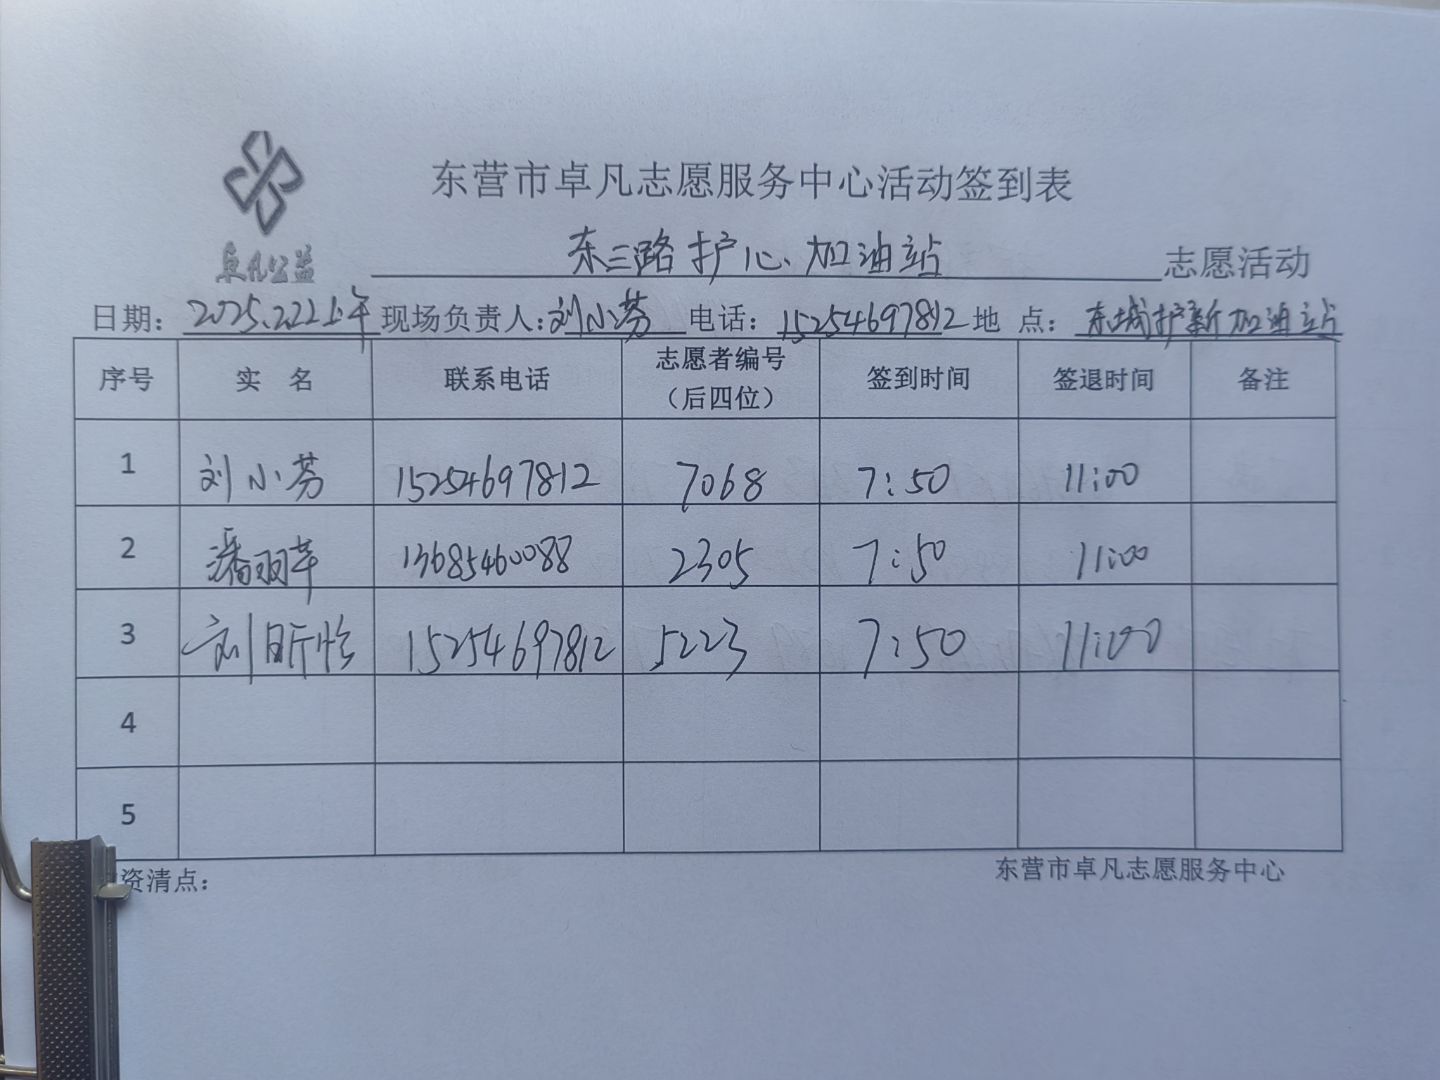 东营市卓凡志愿服务中心活动签到表
卓凡公益
东三路护心加油站 志愿活动
日期: 2025.2.22上午 现场负责人: 刘小芬 电话: 15254697812 地 点: 东城护新加油站
序号 实 名 联系电话 志愿者编号（后四位） 签到时间 签退时间 备注
1 刘小芬 15254697812 7068 7:50 11:00
2 潘羽苹 13685460088 2305 7:50 11:00
3 刘昕怡 15254697812 5223 7:50 11:00
4
5
资清点: 东营市卓凡志愿服务中心